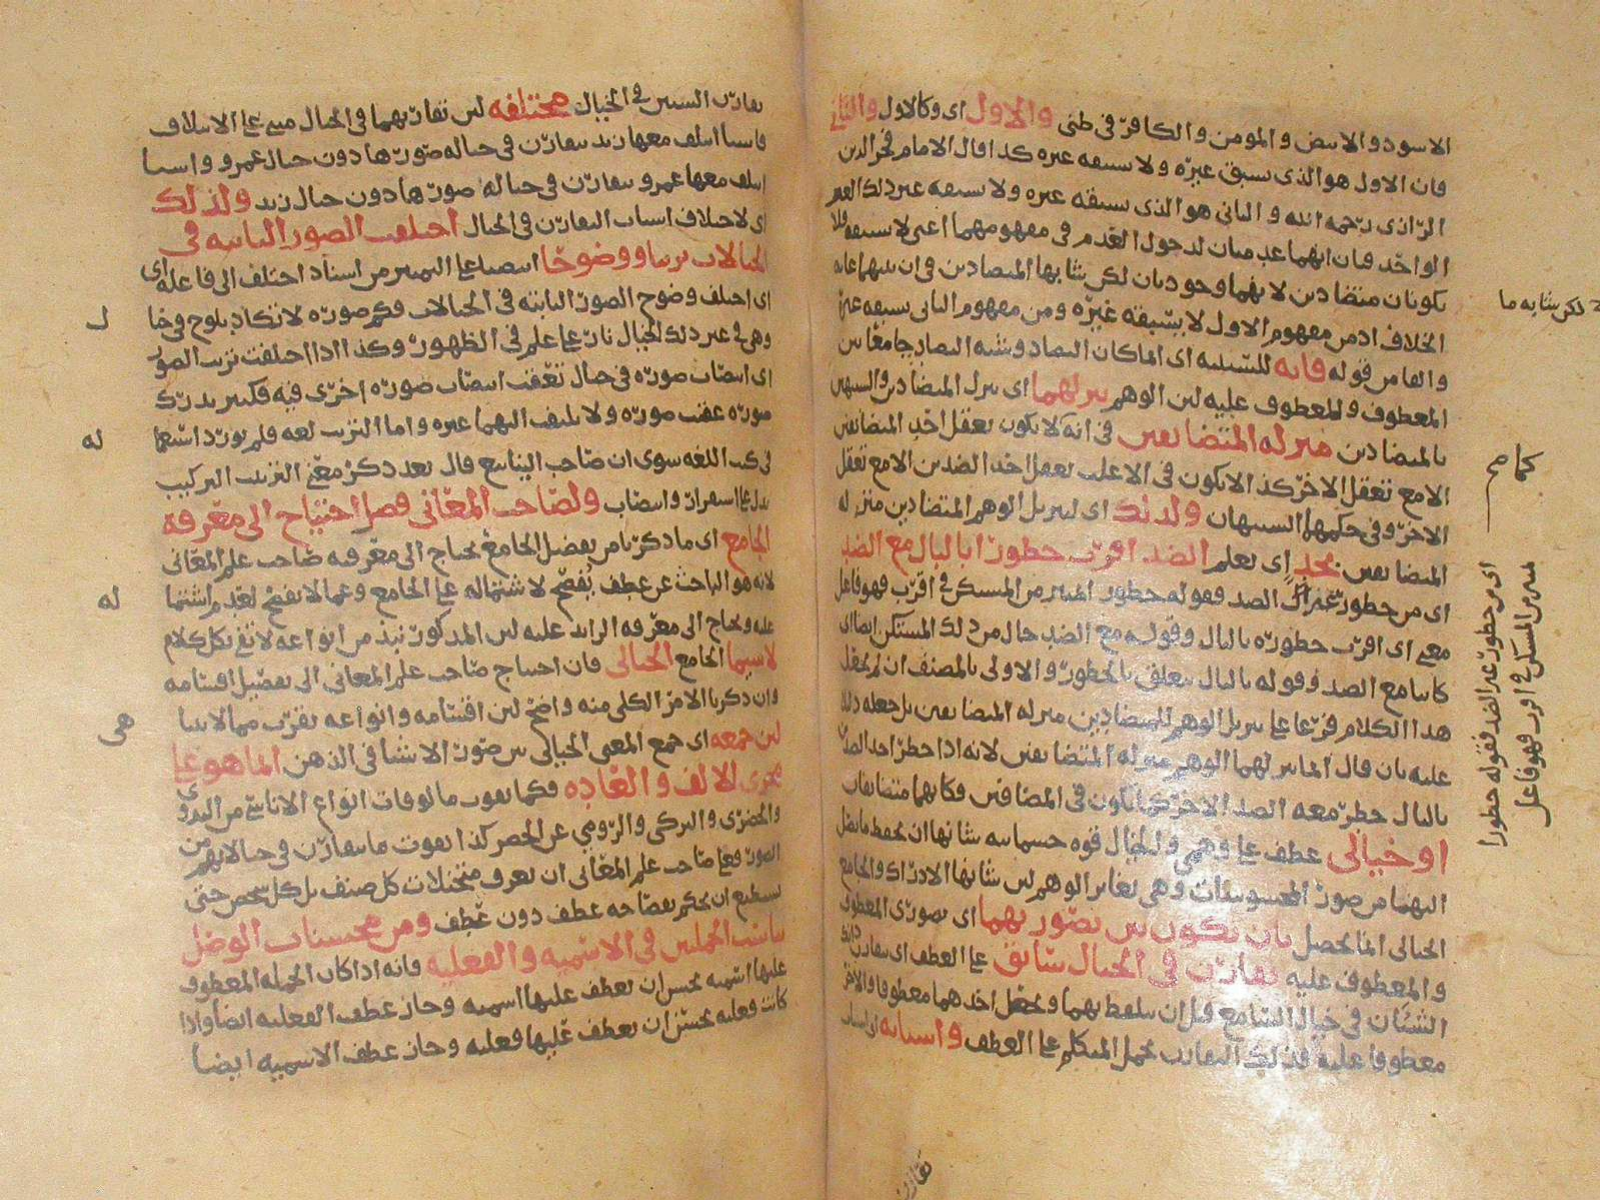 الاسود والابيض والمومن والكافر في ظني والاول اى وكالاول والثاني
فان الاول هو الذى يسبق غيره ولا يسبقه غيره كذا قال الامام فخر الدين
الرازى رحمه الله والثاني هو الذى يسبقه غيره ولا يسبقه غير ذلك الغير
الواحد فبان انهما عدميان لدخول العدم في مفهومهما اعنى لا يسبقه
يكونان متضادين لانهما وجوديان لكن شابها المتضادين في ان بينهما غايه
الخلاف اذ من مفهوم الاول لا يسبقه غيره ومن مفهوم الثاني يسبقه غيره
والفا من قوله فانه للسببيه اى انما كان التضاد وشبه التضاد جامعا بين
المعطوف والمعطوف عليه لان الوهم ينزلهما اى ينزل المتضادين والشبيهين
بالمتضادين منزله المتضايفين في انه كما لا يكون تعقل احد المتضايفين
الا مع تعقل الاخر كذا لا يكون في الاغلب تعقل احد الضدين الا مع تعقل
الاخر وفي حكمهما الشبيهان ولذلك اى لتنزيل الوهم المتضادين منزله
المتضايفين تجد اى تعلم الضد اقرب خطورًا بالبال مع الضد
اى من خطور غير الضد فقوله خطور المميز من المستكن في اقرب فهو فاعل
معنى اى اقرب خطوره بالبال وقوله مع الضد حال من ذلك المستكن ايضا اى
كاينا مع الضد وقوله بالبال يتعلق بالخطور والاولى بالمصنف ان لم يجعل
هذا الكلام فرعا على تنزيل الوهم للمتضادين منزله المتضايفين بل جعله دليلا
عليه بان قال انما ينزلهما الوهم منزله المتضايفين لانه اذا خطر احد الضدين
بالبال خطر معه الضد الاخر كما يكون في المتضايفين فكانهما متضايفان
او خيالى عطف على وهمي والخيال قوه جسمانيه شانها ان تحفظ ما يصل
اليها من صور المحسوسات وهي تغاير الوهم لان شانها الادراك والجامع
الخيالى انما يحصل بان يكون بين تصوريهما اى تصورى المعطوف
والمعطوف عليه تقارن في الخيال سابق على العطف اى تقارن ذانك
الشيئان في خيال السامع قبل ان يتلفظ بهما ويجعل احدهما معطوفا والاخر
معطوفا عليه فذلك التقارن يحمل المتكلم على العطف واسبابه اى اسباب
لكن شابه ما
اى من خطور غير الضد فقوله خطورا
مميز من المستكن في اقرب فهو فاعل
تقارن
تقارن الشيئين في الخيال مختلفه لان تقارنهما في الخيال مبني على الايتلاف
فاسباب ايتلف معها زيد يتقارن في خياله صورها دون خيال عمرو واسباب
ايتلف معها عمرو يتقارن في خياله صورها دون خيال زيد ولذلك
اى لاختلاف اسباب التقارن في الخيال اختلفت الصور الثابته في
الخيالات ترتبا ووضوحًا انتصبا على التمييز من اسناد اختلف الى فاعله اى
اى اختلف وضوح الصور الثابته في الخيالات فكم صوره لا تكاد يلوح في خيال
وهي في غير ذلك الخيال نار على علم في الظهور وكذا اذا اختلفت ترتب الصور
اى انتصاب صوره في خيال تعقب انتصاب صوره اخرى فيه فكثير يدرك
صوره عقب صوره ولا يلتفت اليهما غيره واما الترتب لغه فلم يورد استعما
في كتب اللغه سوى ان صاحب الينابيع قال بعد ذكر معنى الترتب التركيب
يدل على استقرار وانتصاب ولصاحب المعاني فضل احتياج الى معرفة
الجامع اى ما ذكرنا من تفصيل الجامع يحتاج الى معرفه صاحب علم المعاني
لانه هو الباحث عن عطف يفتح لاشتماله على الجامع وعما لا يفتح لعدم اشتما
عليه ويحتاج الى معرفه الزايد عليه لان المذكور نبذ من انواعه لا تفي بكل كلام
لاسيما الجامع الخيالى فان احتياج صاحب علم المعاني الى تفصيل اقسامه
وان ذكرنا الامر الكلي منه واضح لان اقسامه وانواعه تقرب مما لا يتنا
لان جمعه اى جمع المعنى الخيالى بين صور الاشيا في الذهن انما هو على
مجرى الالف والعاده فكما تفوت مالوفات انواع الاناسى من البدوى
والحضرى والتركى والرومي عن الحصر كذا تفوت ما يتقارن في خيالاتهم من
الصور فعلى صاحب علم المعاني ان يعرف متخيلات كل صنف بل كل شخص حتى
يستطيع ان يحكم بفصاحه عطف دون عطف ومن محسنات الوصل
تناسب الجملتين في الاسميه والفعليه فانه اذا كان الجمله المعطوف
عليها اسميه يحسن ان يعطف عليها اسميه وجاز عطف الفعليه ايضا واذا
كانت فعليه يحسن ان يعطف عليها فعليه وجاز عطف الاسميه ايضا
ل
له
له
هى